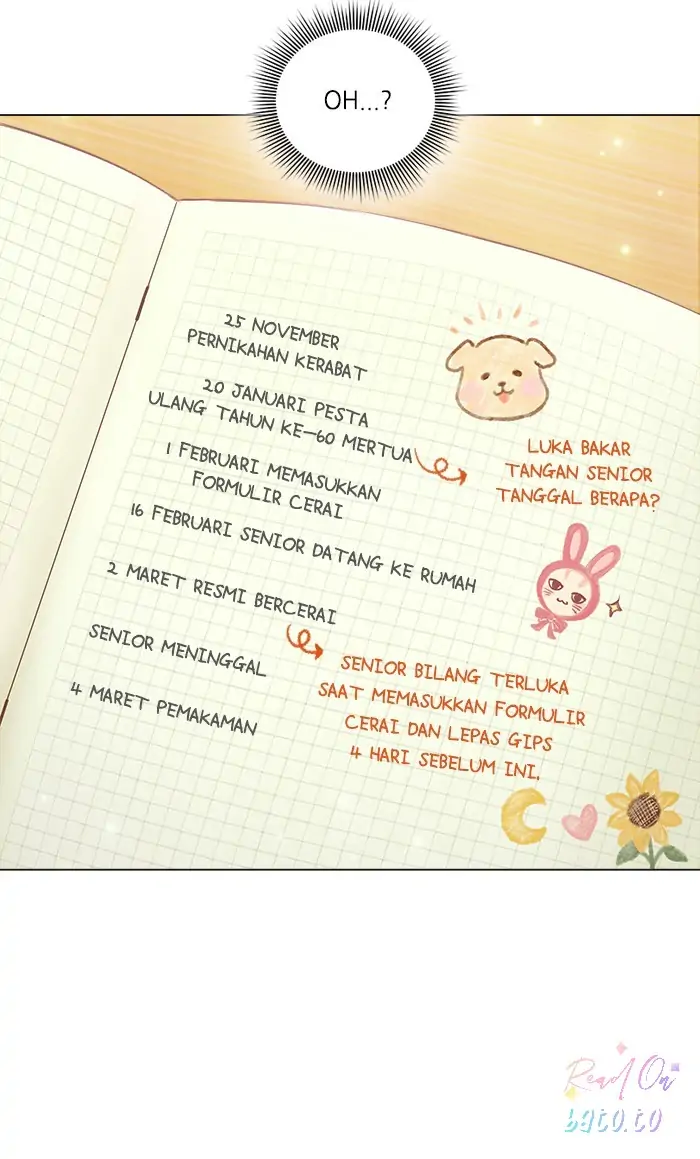 OH...?
25 NOVEMBER
PERNIKAHAN KERABAT
20 JANUARI PESTA
ULANG TAHUN KE-60 MERTUA
LUKA BAKAR
TANGAN SENIOR
TANGGAL BERAPA?
1 FEBRUARI MEMASUKKAN
FORMULIR CERAI
16 FEBRUARI SENIOR DATANG KE RUMAH
2 MARET RESMI BERCERAI
SENIOR MENINGGAL
4 MARET PEMAKAMAN
SENIOR BILANG TERLUKA
SAAT MEMASUKKAN FORMULIR
CERAI DAN LEPAS GIPS
4 HARI SEBELUM INI.
Read On
bato.to